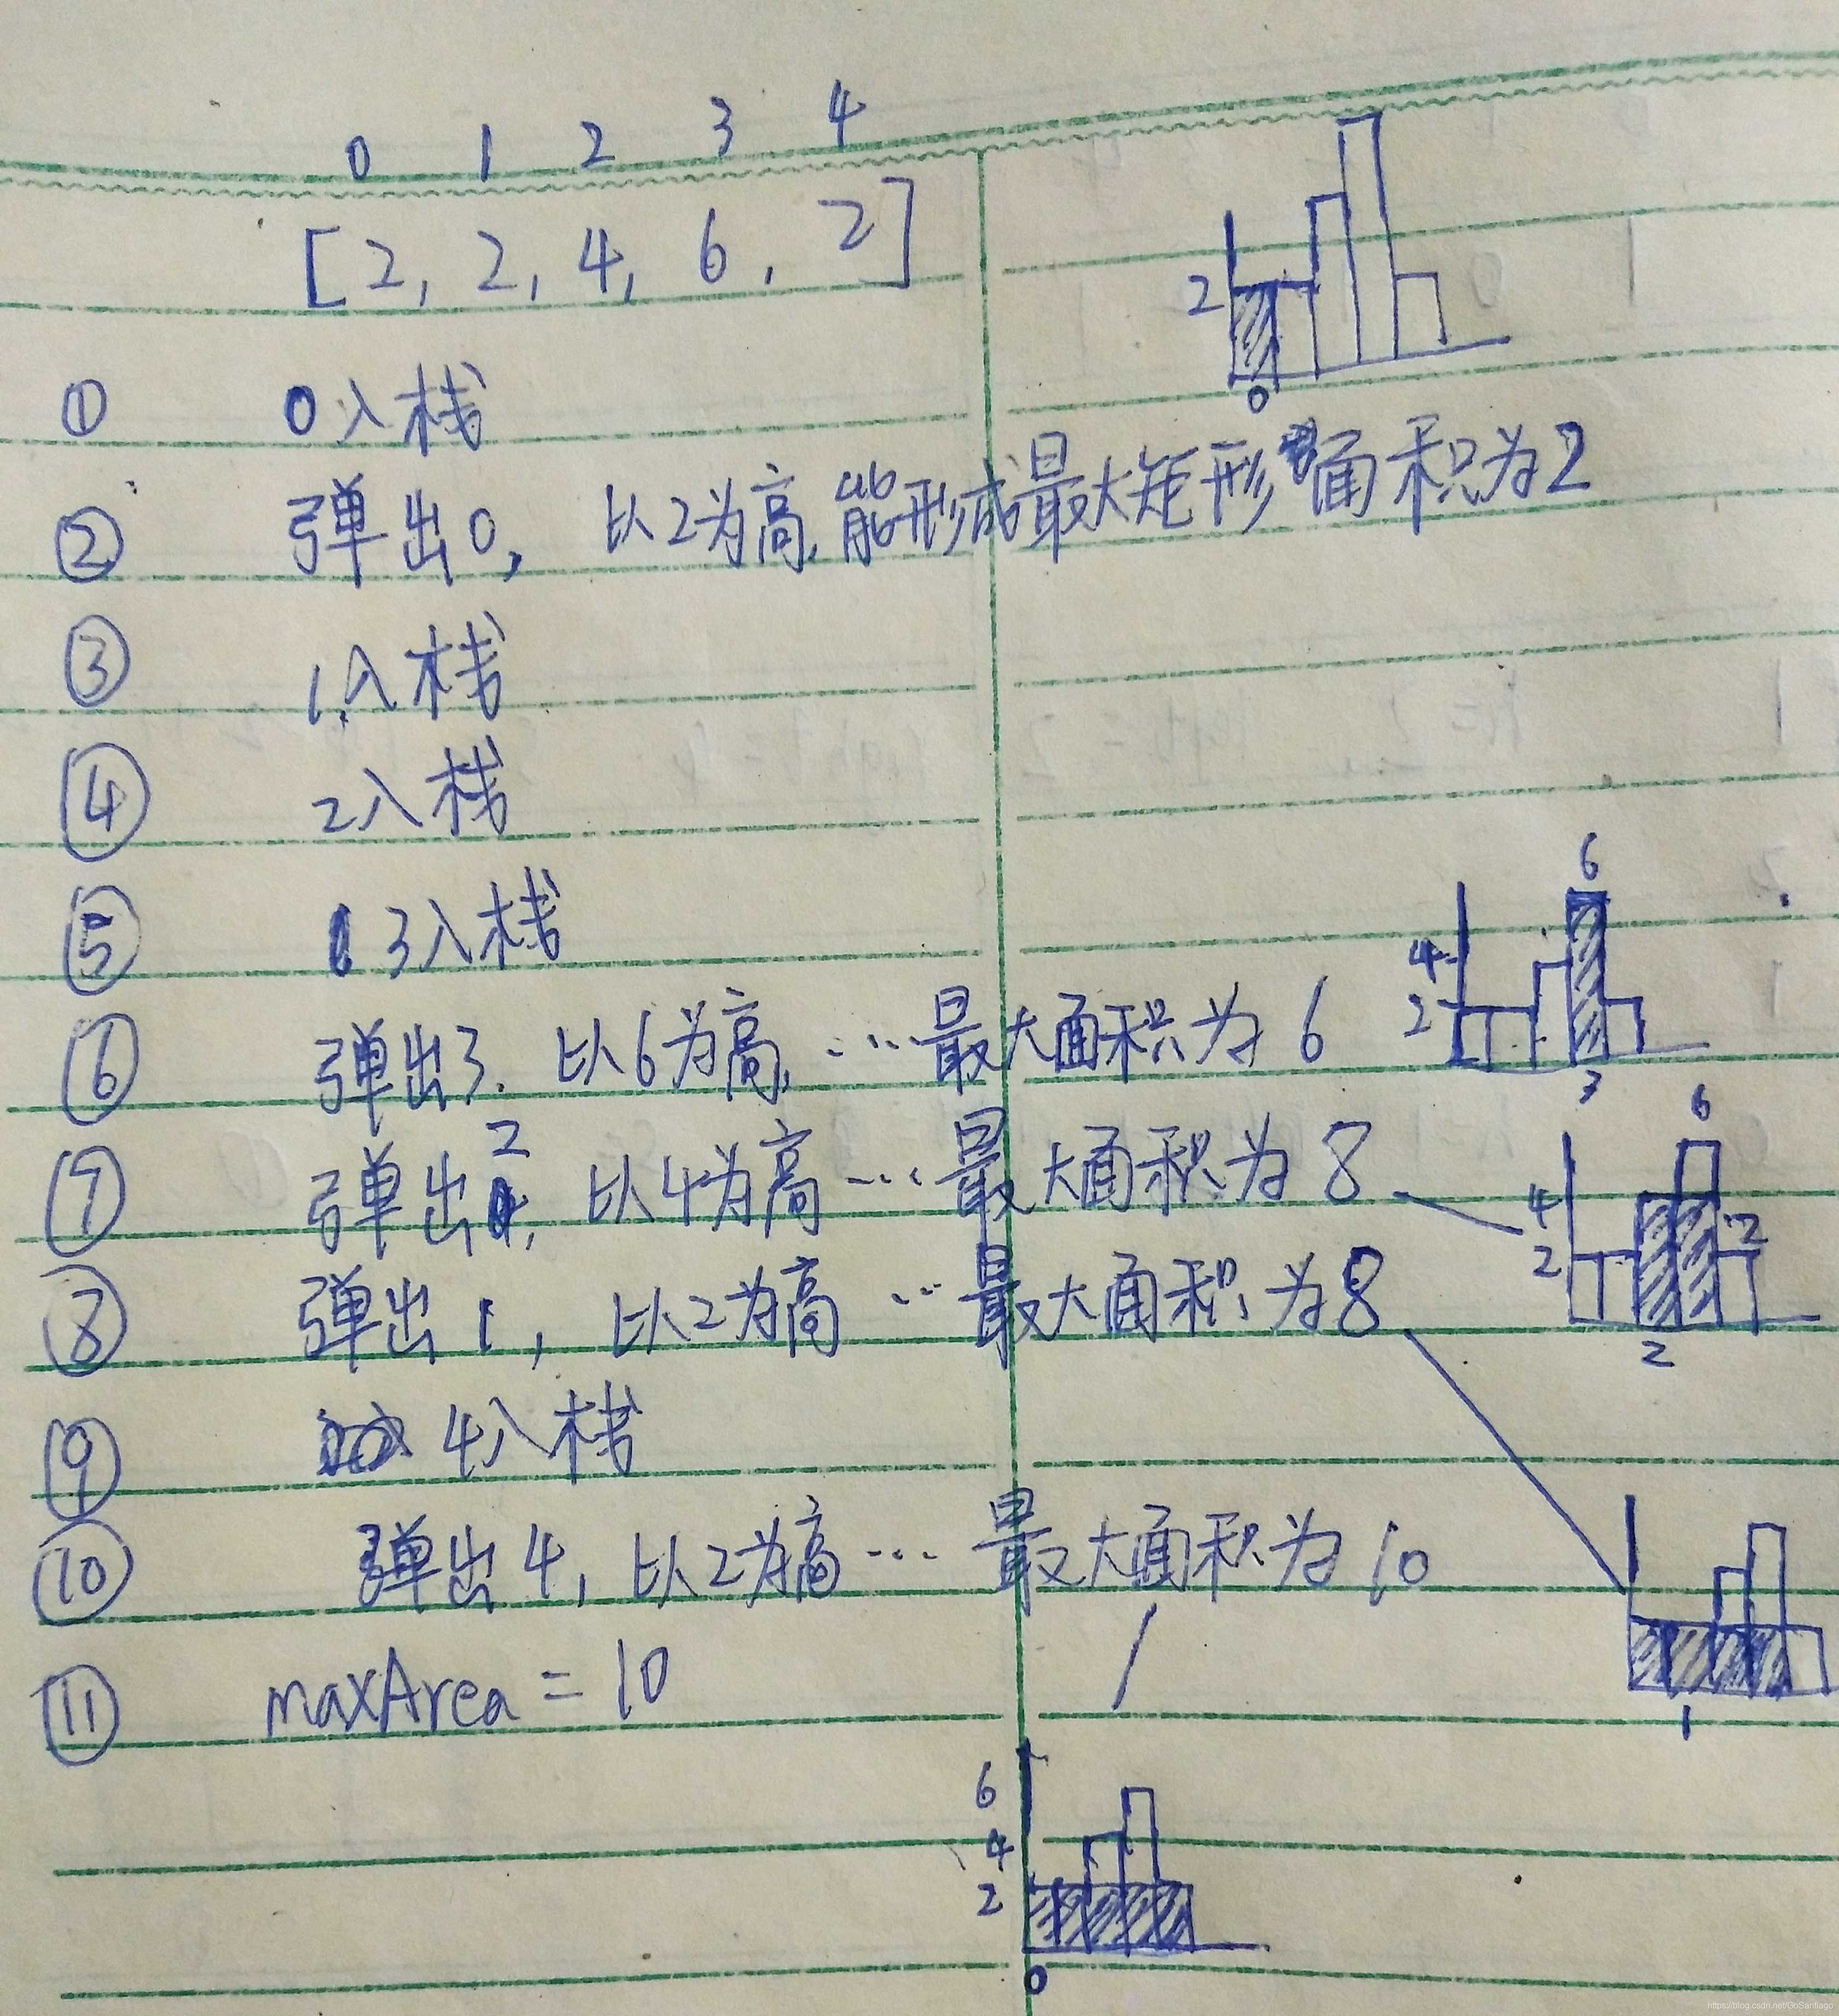 0 1 2 3 4
[2, 2, 4, 6, 2]
2
0
① 0入栈
② 弹出0, 以2为高,能形成最大矩形面积为2
③ 1入栈
④ 2入栈
⑤ 3入栈
6
4
2
3
⑥ 弹出3. 以6为高, ...最大面积为6
⑦ 弹出2, 以4为高...最大面积为8
6
4
2
2
2
⑧ 弹出1, 以2为高...最大面积为8
⑨ 4入栈
⑩ 弹出4, 以2为高...最大面积为10
1
⑪ maxArea = 10
6
4
2
0
https://blog.csdn.net/GoSantiago